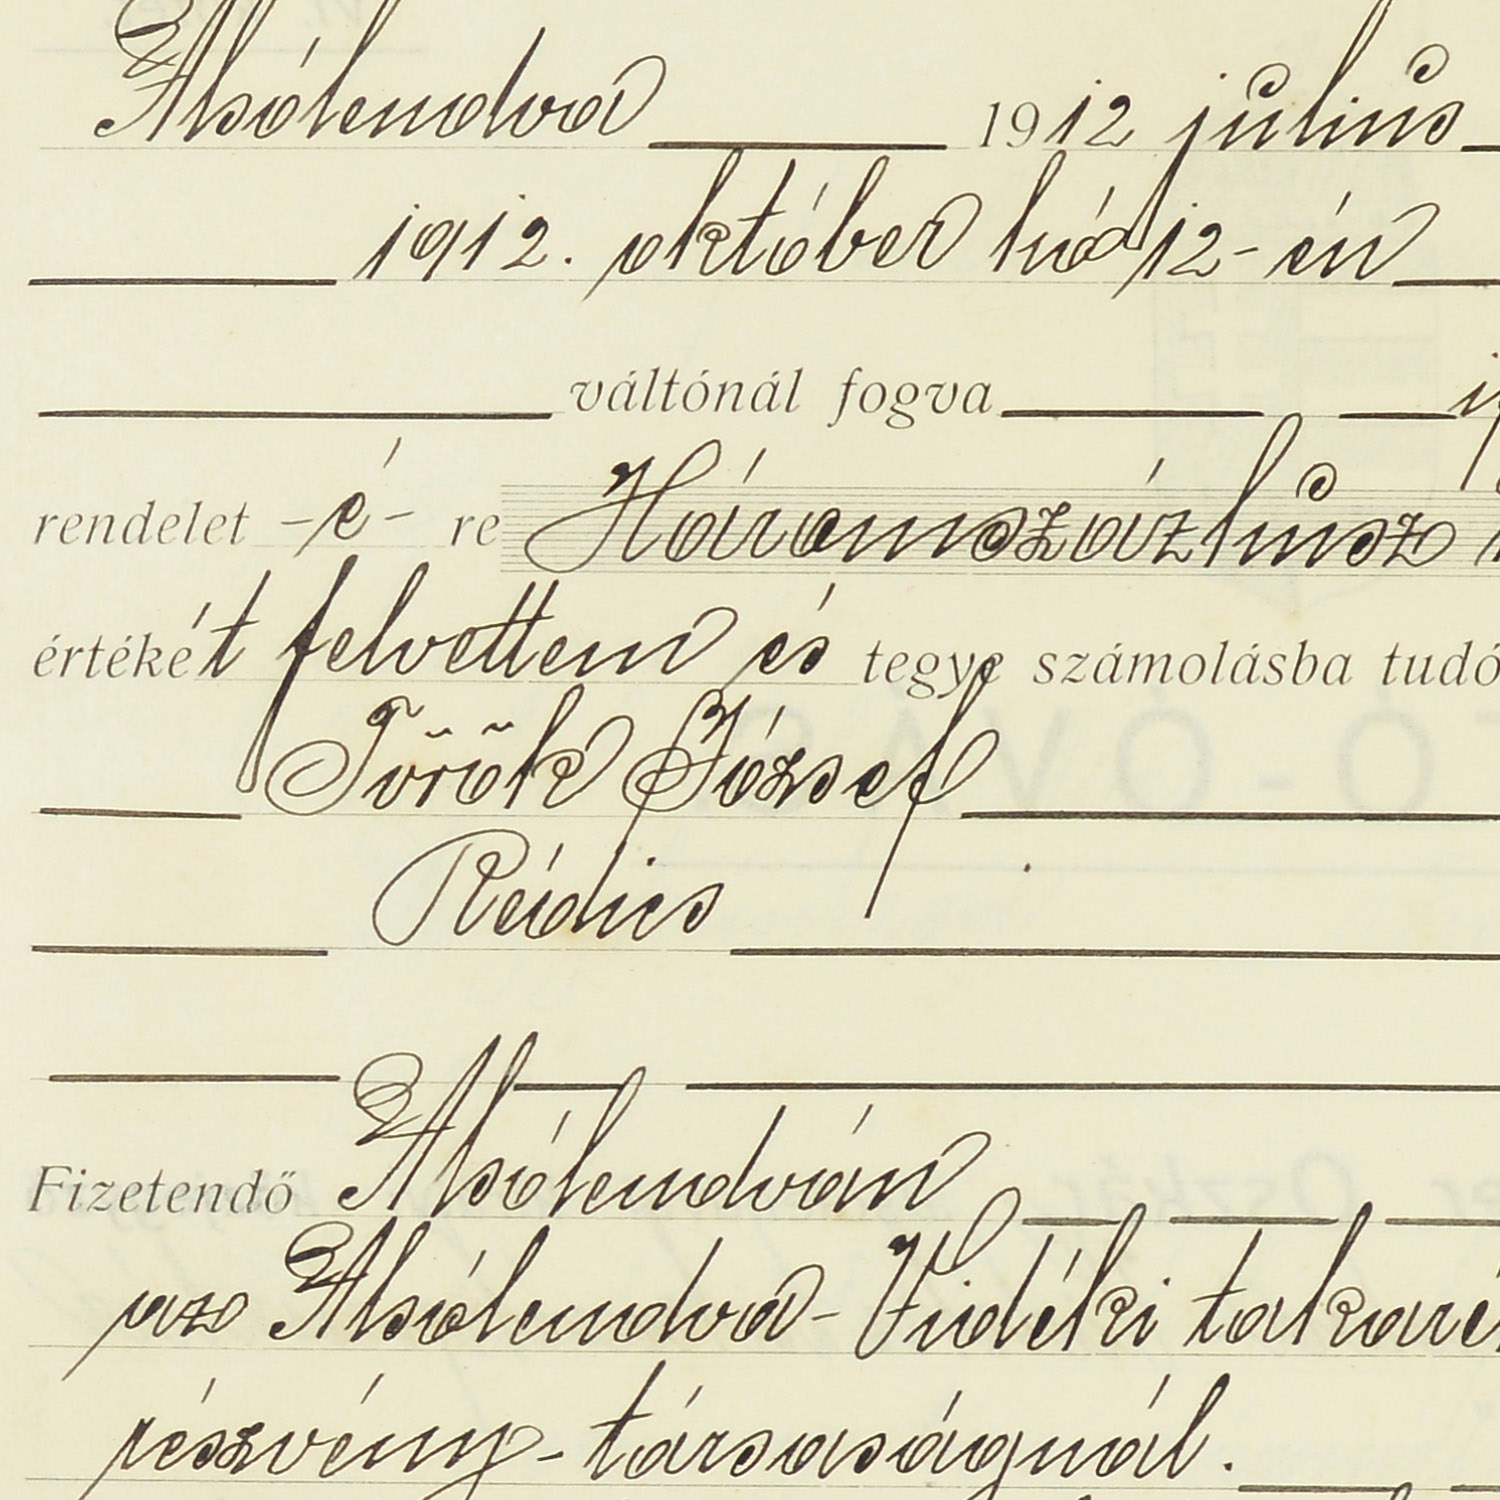 Alsólendva 1912 július
1912. október hó 12-én
váltónál fogva
rendelet -é- re Háromszázhúsz
értékét felvettem és tegye számolásba tudó
Török József
Rédics
Fizetendő Alsólendván
az Alsólendva-Vidéki takaré
részvény-társaságnál.